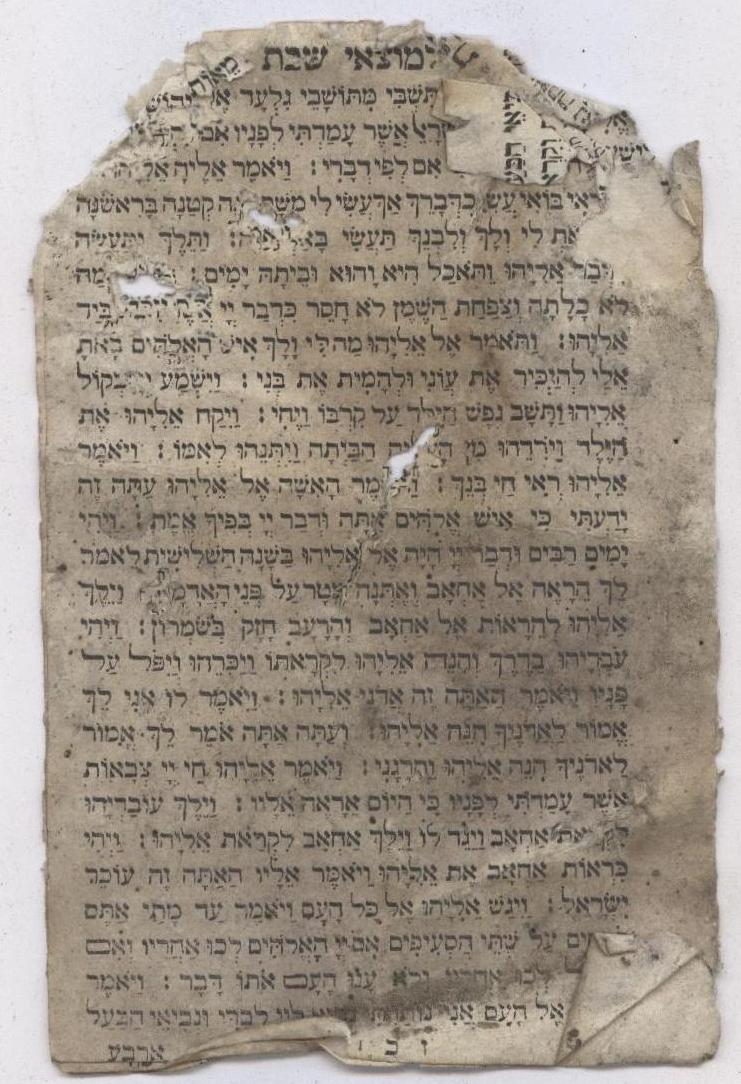 למוצאי שבת
התשבי מתושבי גלעד
אשר עמדתי לפניו אם
אם לפי דברי : ויאמר אליה
בואי עשי כדברך אך עשי לי משם קטנה בראשנה
לי ולך ולבנך תעשי : ותלך ותעשה
אליהו ותאכל היא והוא וביתה ימים :
לא כלתה וצפחת השמן לא חסר כדבר יי אשר ביד
אליהו : ותאמר אל אליהו מה לי ולך איש האלהים באת
אלי להזכיר את עוני ולהמית את בני : וישמע יי בקול
אליהו ותשב נפש הילד על קרבו ויחי : ויקח אליהו את
הילד וירדהו מן הביתה ויתנהו לאמו : ויאמר
אליהו ראי חי בנך : ותאמר האשה אל אליהו עתה זה
ידעתי כי איש אלהים אתה ודבר יי בפיך אמת : ויהי
ימים רבים ודבר יי היה אל אליהו בשנה השלישית לאמר
לך הראה אל אחאב ואתנה מטר על פני האדמה וילך
אליהו להראות אל אחאב והרעב חזק בשמרון : ויהי
עבדיהו בדרך והנה אליהו לקראתו ויכרהו ויפל על
פניו ויאמר האתה זה אדני אליהו : ויאמר לו אני לך
אמור לאדניך הנה אליהו : ועתה אתה אמר לך אמור
לאדניך הנה אליהו והרגני : ויאמר אליהו חי יי צבאות
אשר עמדתי לפניו כי היום אראה אליו : וילך עובדיהו
אחאב ויגד לו וילך אחאב לקראת אליהו : ויהי
כראות אחאב את אליהו ויאמר אליו האתה זה עוכר
ישראל : ויגש אליהו אל כל העם ויאמר עד מתי אתם
על שתי הסעיפים אם יי האלהים לכו אחריו ואם
לכו אחריו ולא ענו העם אתו דבר : ויאמר
אל העם אני נותרתי לבדי ונביאי הבעל
ארבע